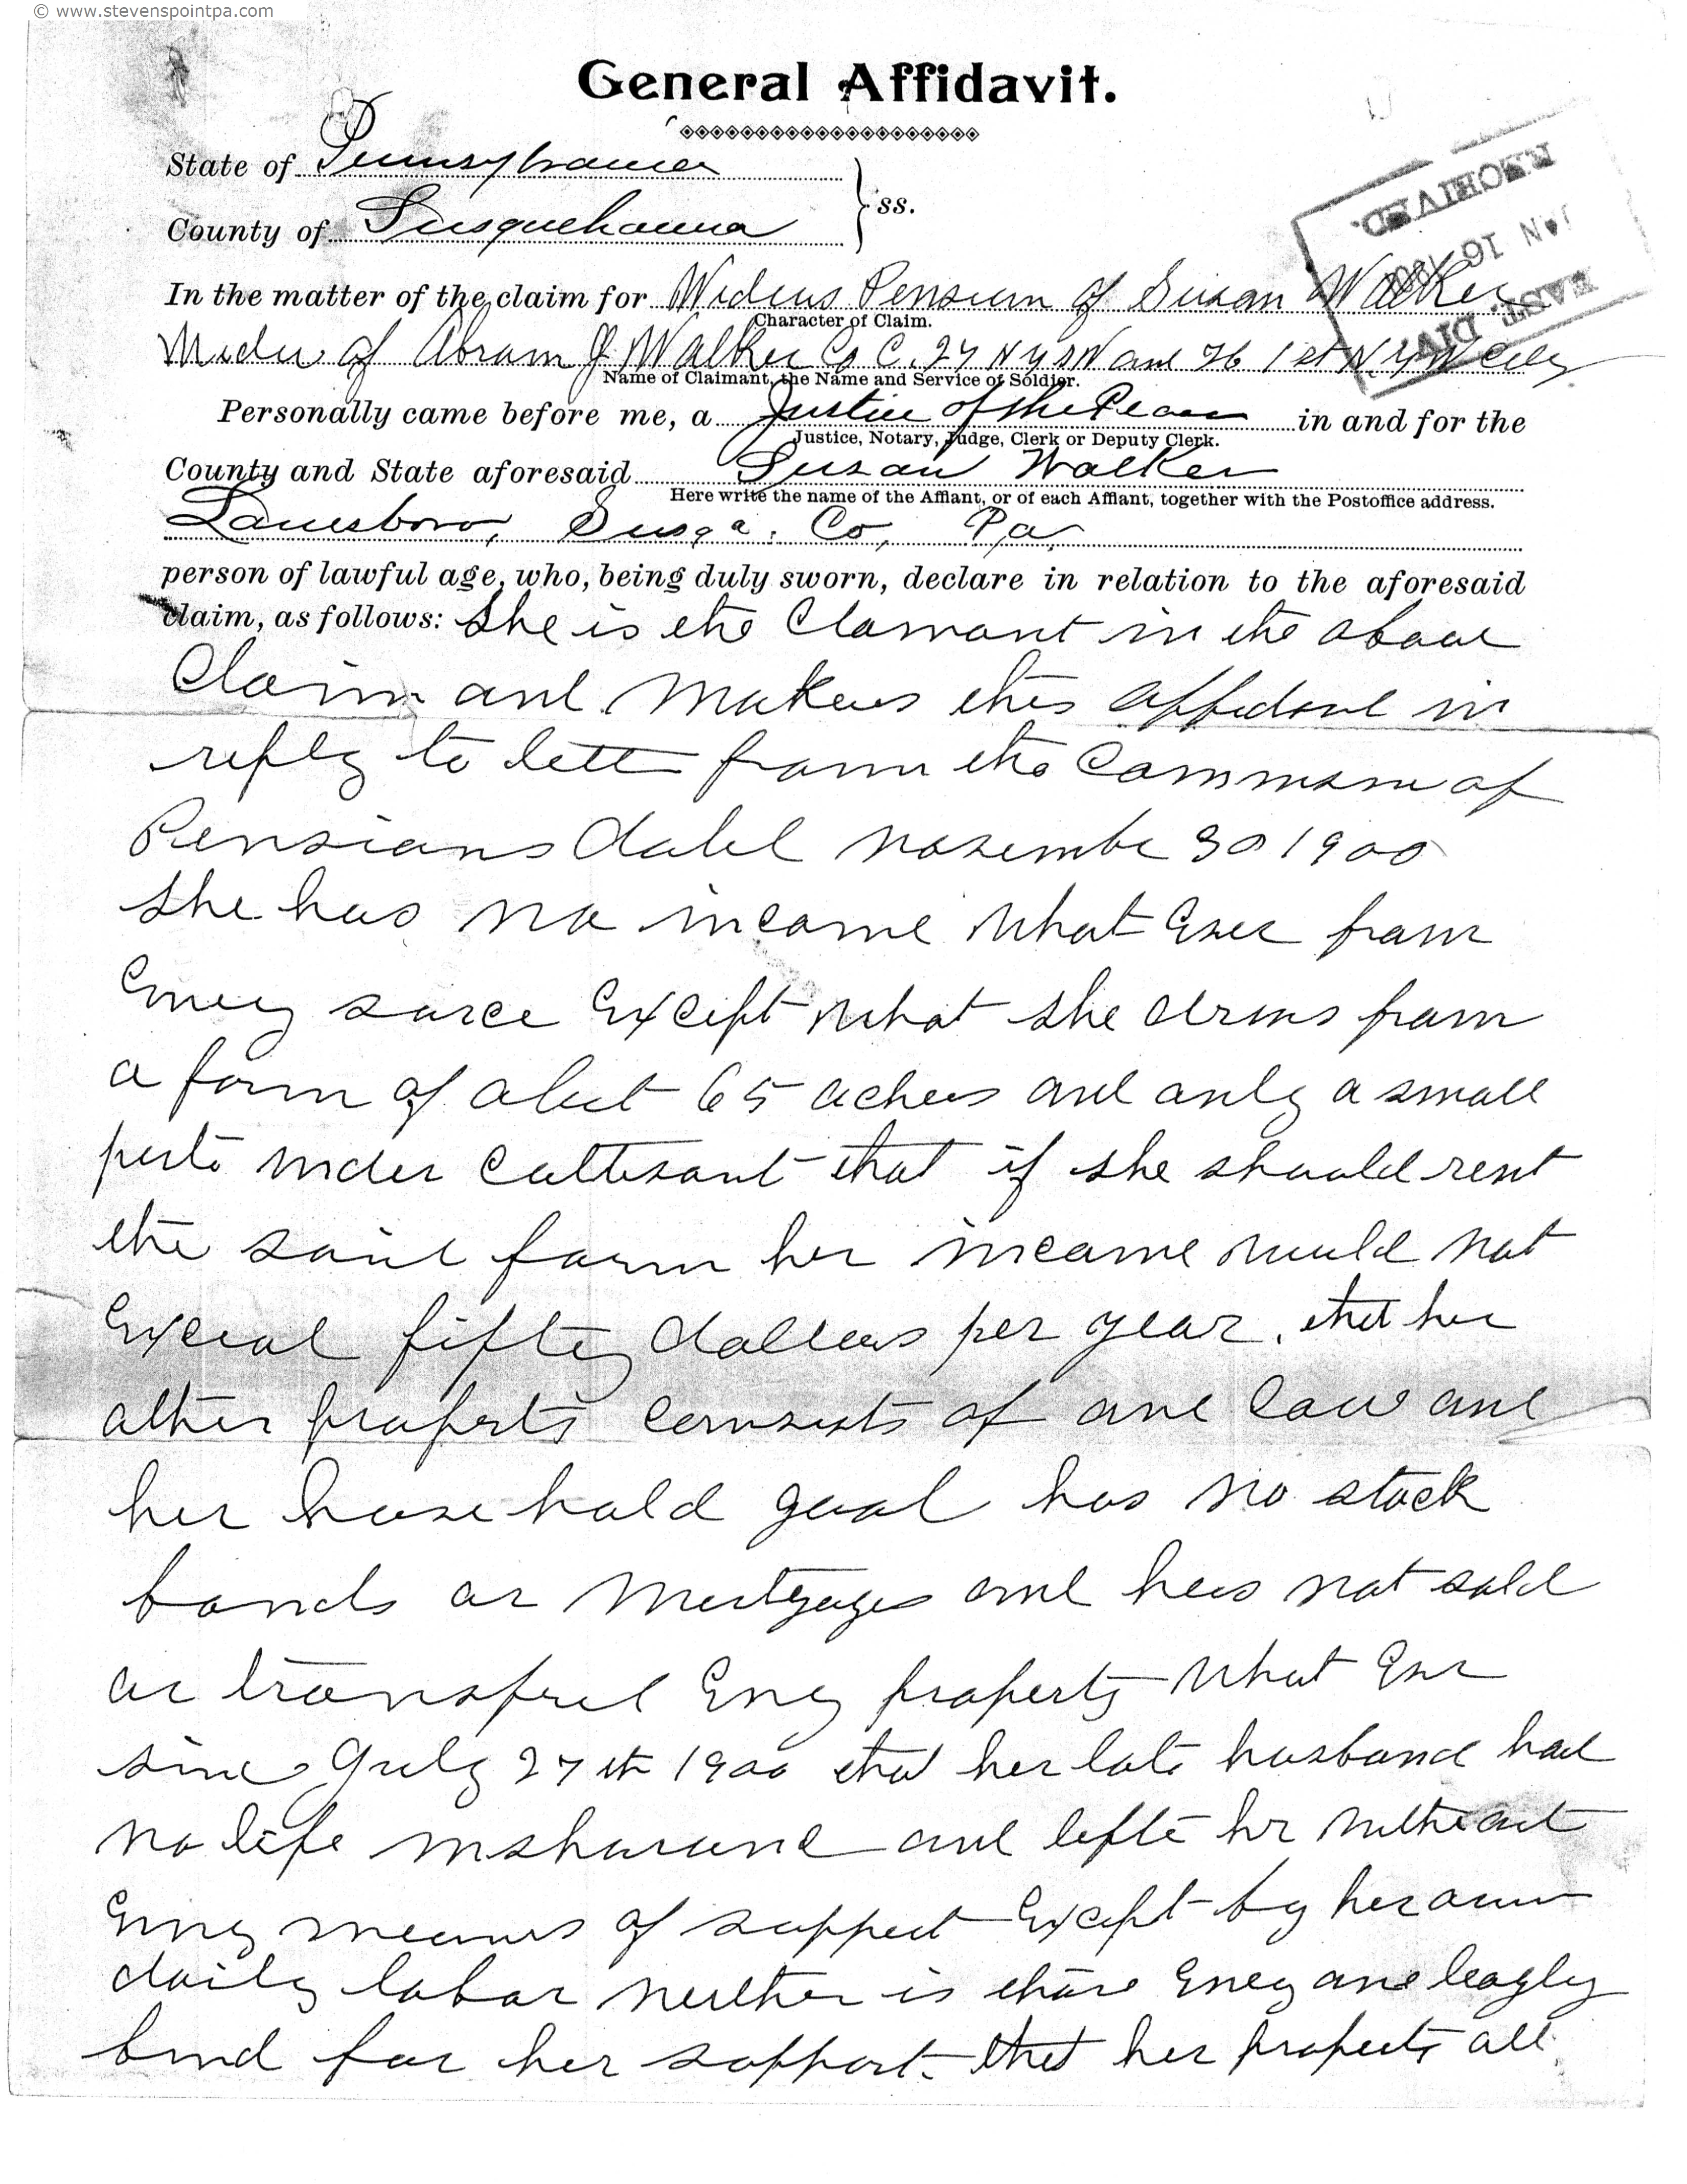 © www.stevenspointpa.com
General Affidavit.
State of Pennsylvania
County of Susquehanna
ss.
RECEIVED.
JAN 16
EAST. DIV.
In the matter of the claim for Widows Pension of Susan Walker
Character of Claim.
Widow of Abram J Walker Co C. 27 N Y S N and H 1st N.Y. V Cav
Name of Claimant, the Name and Service of Soldier.
Personally came before me, a Justice of the Peace in and for the
Justice, Notary, Judge, Clerk or Deputy Clerk.
County and State aforesaid Susan Walker
Here write the name of the Affiant, or of each Affiant, together with the Postoffice address.
Lanesboro, Susqa. Co, Pa,
person of lawful age, who, being duly sworn, declare in relation to the aforesaid
claim, as follows: She is the Clamant in the above
Claim and Makes this affidavit in
reply to letter from the Commsnr of
Pensions dated November 30 1900
She has no income What Ever from
Eney source Except What she derives from
a farm of about 65 achers and only a small
parte under Cultivation that if she should rent
the said farm her income would not
Exceed fifty dollars per year. that her
other property consists of one Cow and
her house hold good has no stock
bonds or Mortgages and has not sold
or transfred Eney property What Ever
since July 27th 1900 that her late husband had
no life inshurance and lefte her without
Eney means of support Except by her own
daily labor neither is there Eney one leagly
bond for her support. that her property all